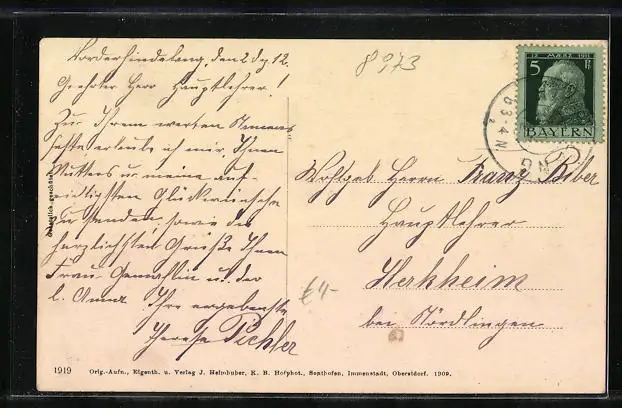 Vorderhindelang, den 2. Dz. 12.
Geehrter Herr Hauptlehrer!
Zu Ihrem werten Namens-
feste erlaube ich mir, Ihnen
Mutters u. meine auf-
richtigsten Glückwünsche
zu senden, sowie die
herzlichsten Grüße Ihrer
Frau Gemahlin u. der
l. Anna Ihre ergebenste
Therese Pichler
8973
12. MÄRZ 1911
5 Pf
BAYERN
Wohlgeb. Herrn Franz Biber
Hauptlehrer
Herkheim
bei Nördlingen
€4-
1919 Orig.-Aufn., Eigenth. u. Verlag J. Heimhuber, K. B. Hofphot., Sonthofen, Immenstadt, Oberstdorf. 1909.